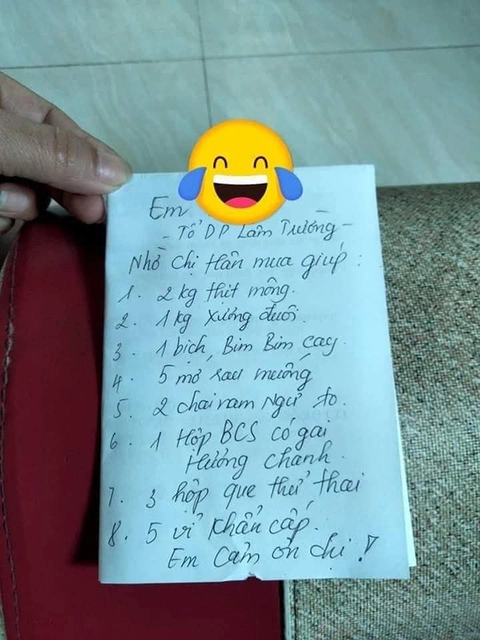 Em
- Tổ DP Lâm Trường -
Nhờ chị Hân mua giúp:
1. 2 kg thịt mông.
2. 1 kg xương đuôi.
3. 1 bịch, Bim Bim cay.
4. 5 mớ rau muống
5. 2 chai nam Ngư to.
6. 1 Hộp BCS có gai
Hương chanh.
7. 3 hộp que thử thai
8. 5 vỉ khẩn cấp.
Em cảm ơn chị !